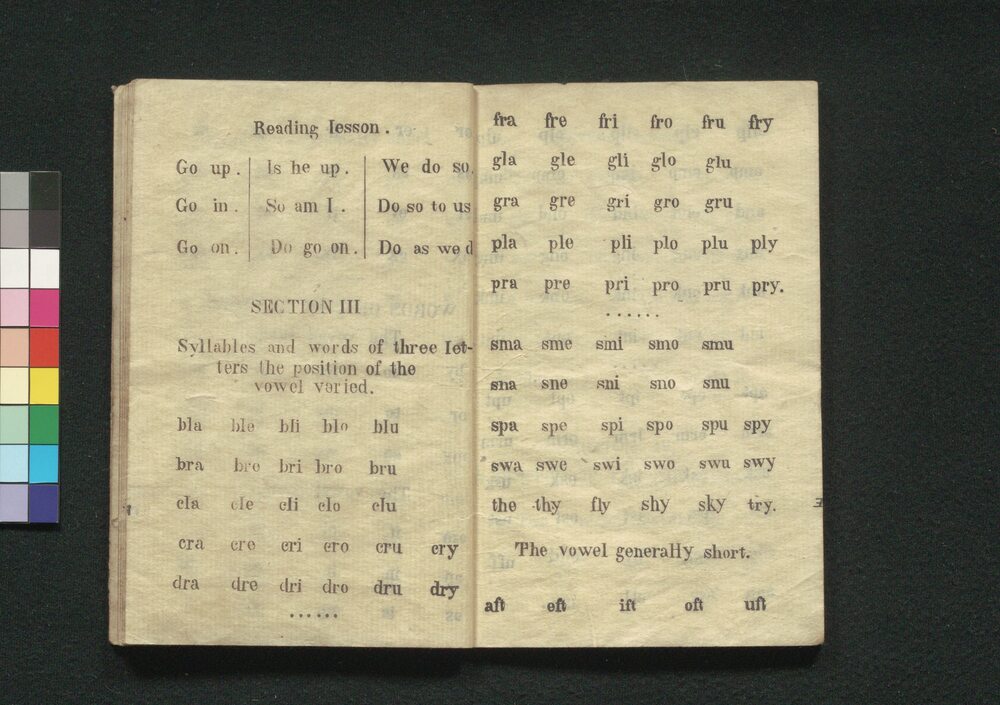 Reading lesson.
Go up. Is he up. We do so.
Go in. So am I. Do so to us
Go on. Do go on. Do as we d
SECTION III
Syllables and words of three let-
ters the position of the
vowel varied.
bla ble bli blo blu
bra bre bri bro bru
cla cle cli clo clu
cra cre cri cro cru cry
dra dre dri dro dru dry
......
fra fre fri fro fru fry
gla gle gli glo glu
gra gre gri gro gru
pla ple pli plo plu ply
pra pre pri pro pru pry.
......
sma sme smi smo smu
sna sne sni sno snu
spa spe spi spo spu spy
swa swe swi swo swu swy
the thy fly shy sky try.
The vowel generally short.
aft eft ift oft uft